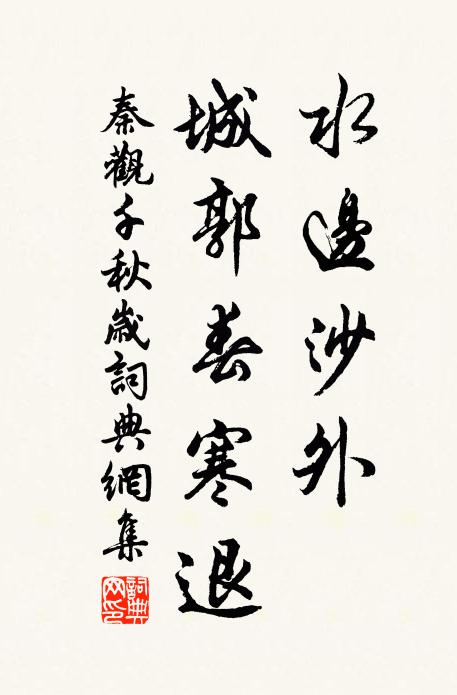 水邊沙外
城郭春寒退
秦觀千秋歲詞典網集
詞典網印